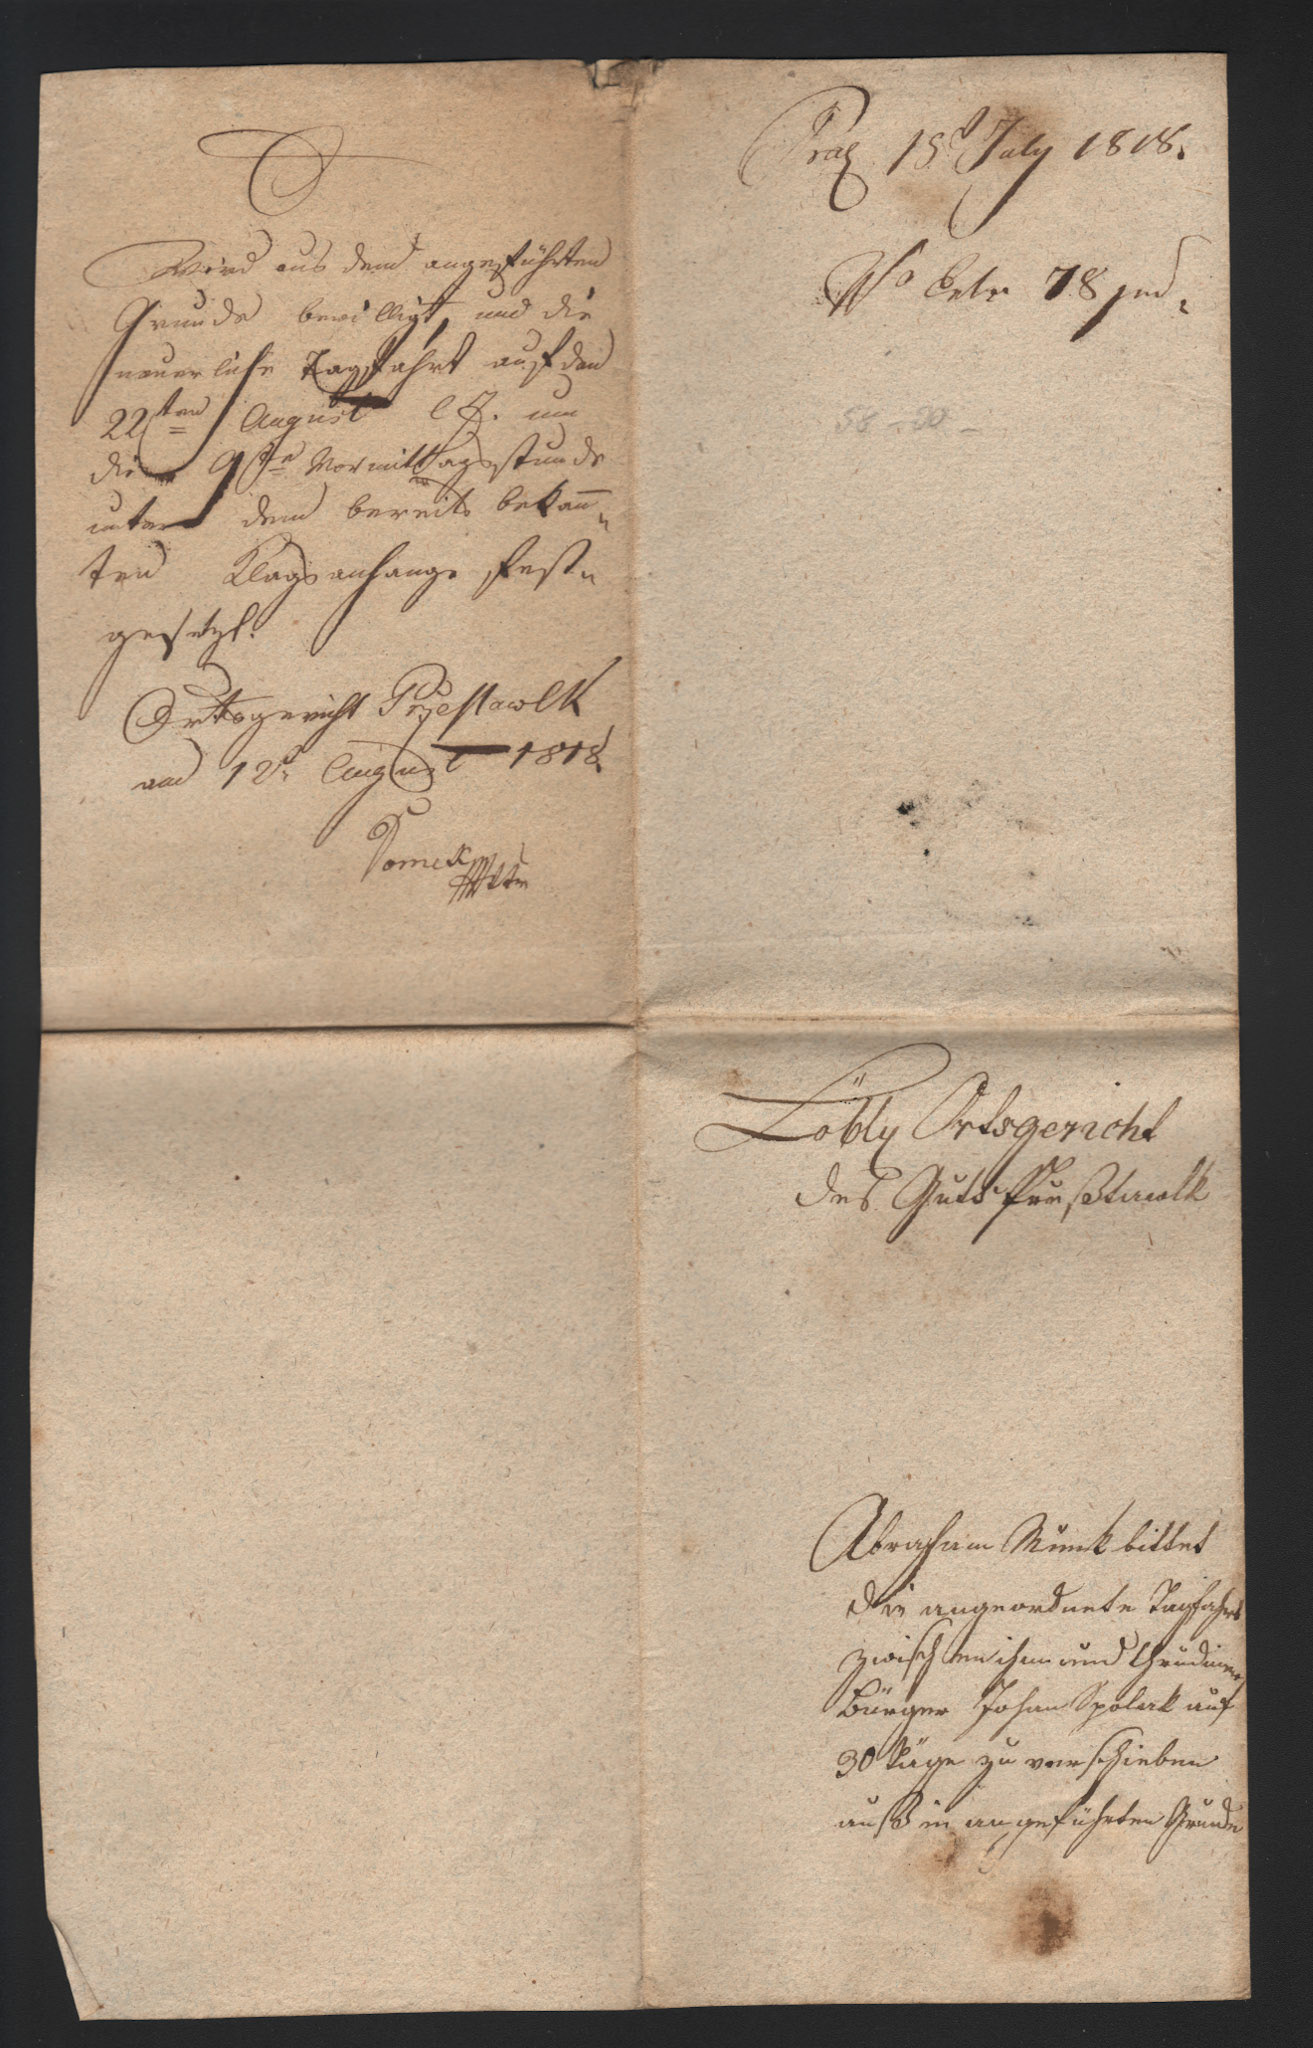 Wird aus dem angeführten
Grunde bewilligt, und die
neuerliche Tagfahrt auf den
22ten August l. J. um
die 9te Vormittagsstunde
unter dem bereits bekann-
ten Klagsanhange fest-
gesetzt.
Ortsgericht Przestawlk
am 12t August 1818
Tomek
Pras 15t July 1818.
78 jud.
Löbly Ortsgericht
des Guts
Abraham Munk bittet
die angeordnete Tagfahrt
zwischen ihm und Chrudimer
Bürger Johan Spolak auf
30 Täge zu verschieben
auß in angeführten Grunde